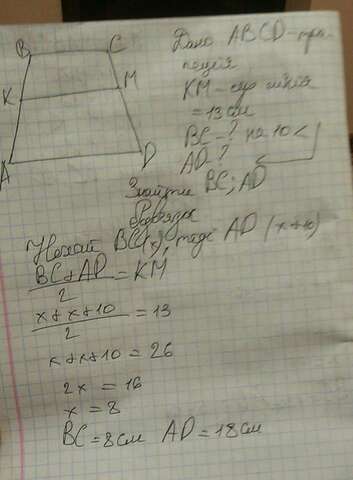 B C
Дано ABCD-тра
пеція
K M
KM-сер лінія
=13см
BC-? на 10<
AD?
A D
Знайти BC; AD
Розвязок
Нехай BC(x), тоді AD (x+10)
BC+AD/2 = KM
x+x+10/2 = 13
x+x+10=26
2x = 16
x = 8
BC=8см AD=18см